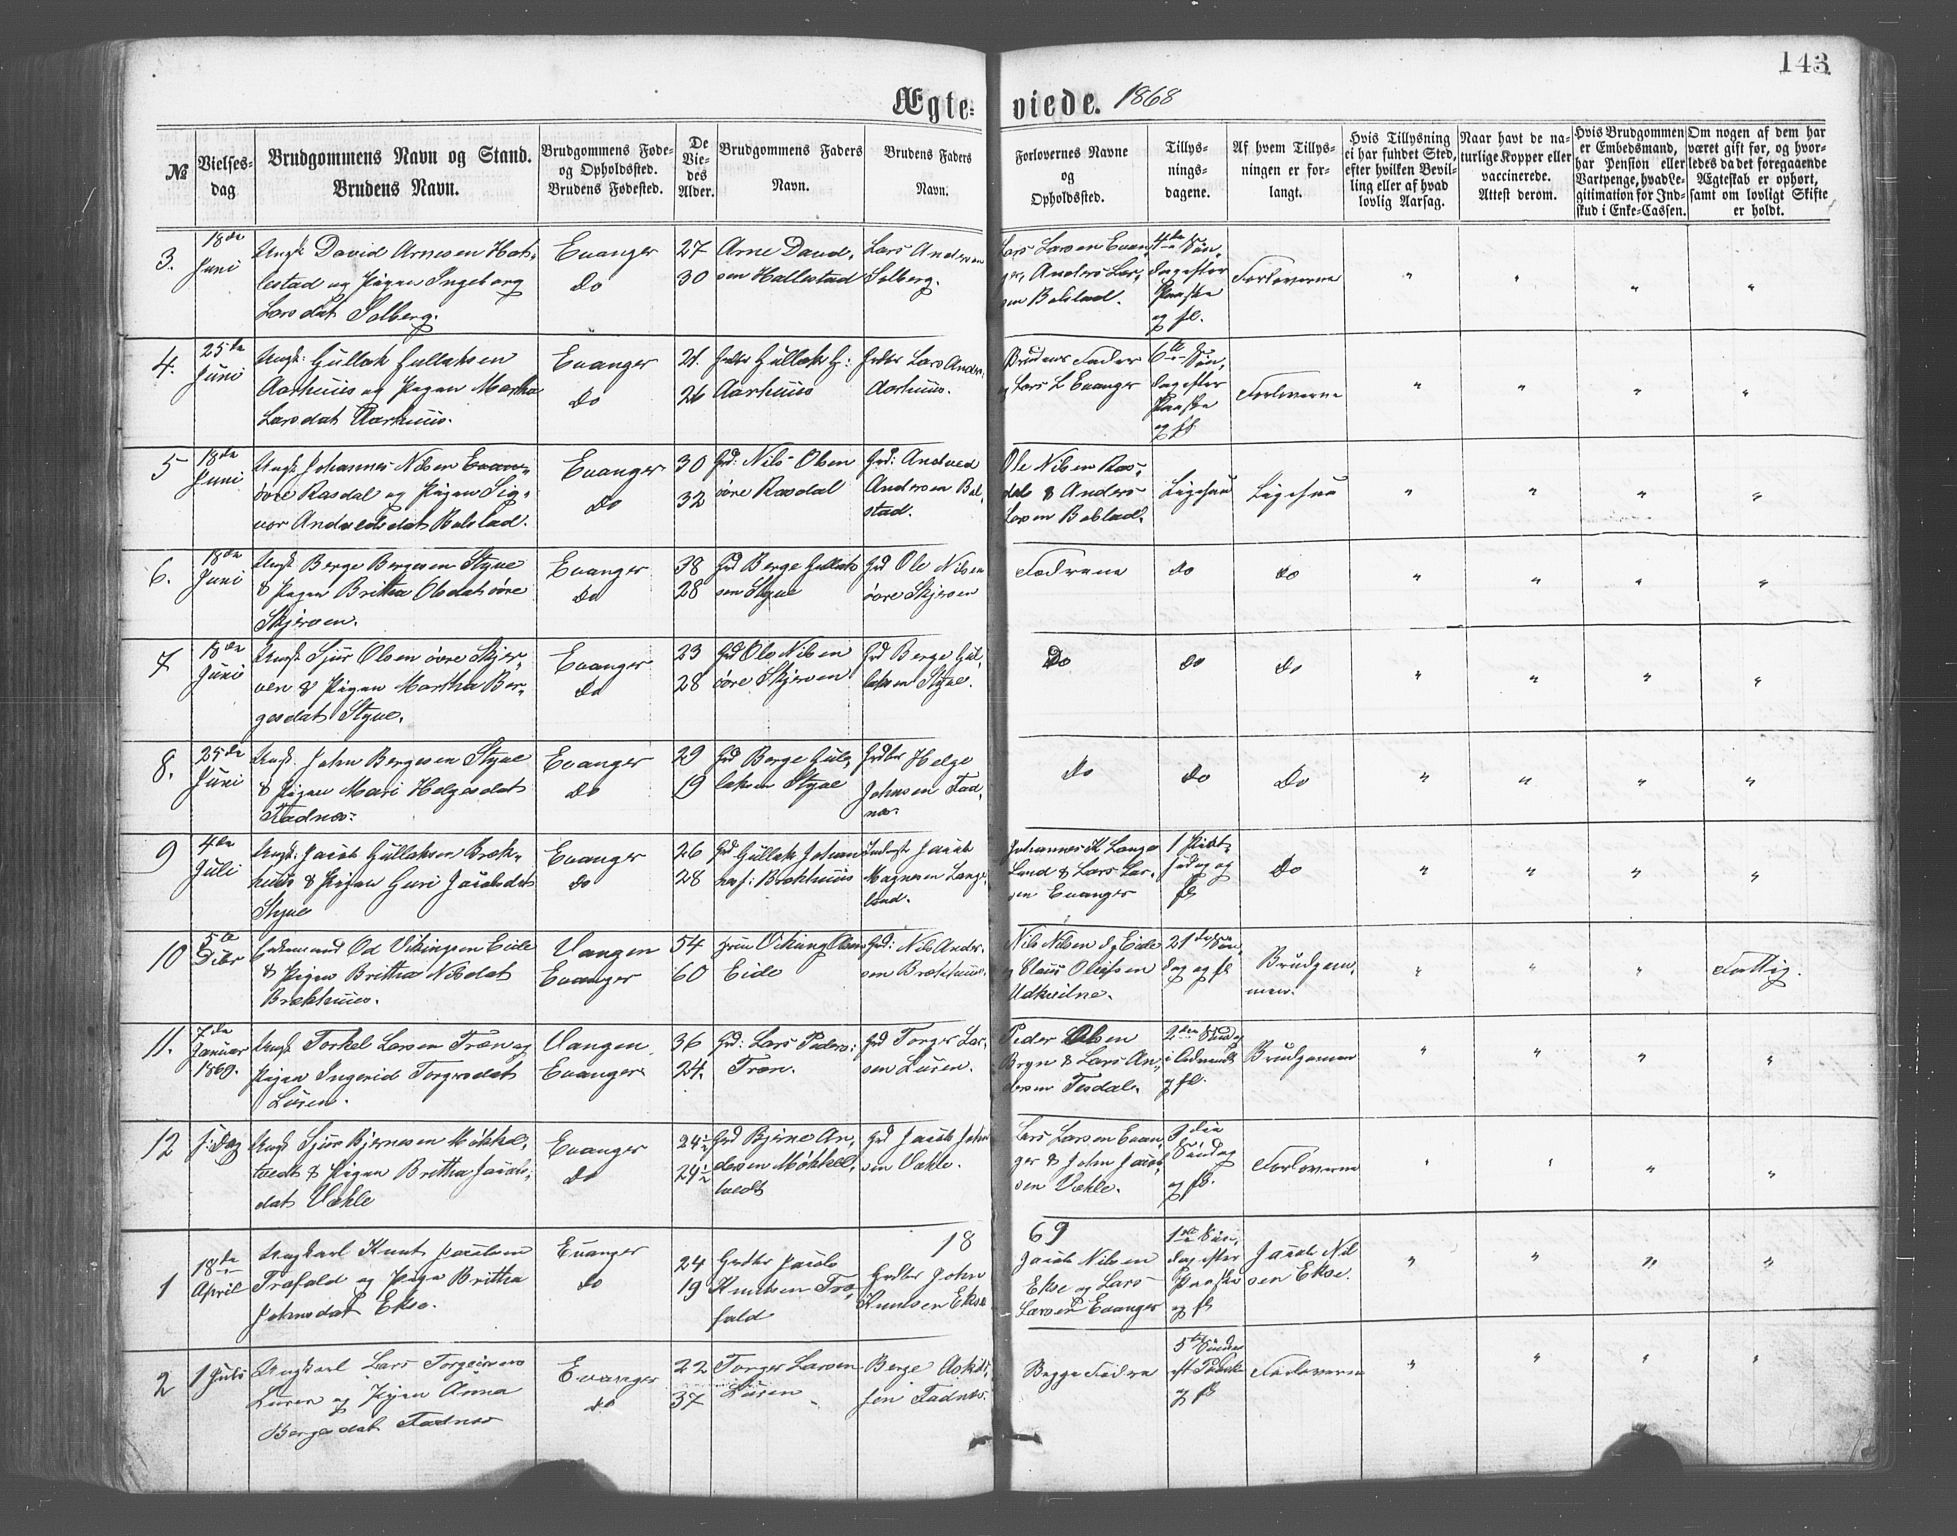 143
Ægteviede. 1868
№
Vielses-
dag
Brudgommens Navn og Stand.
Brudens Navn.
Brudgommens Føde-
og Opholdssted.
Brudens Fødested.
De
Vie-
des
Alder.
Brudgommens Faders
Navn.
Brudens Faders
Navn.
Forlovernes Navne
og
Opholdssted.
Tillys-
nings-
dagene.
Af hvem Tillys-
ningen er for-
langt.
Hvis Tillysning
ei har fundet Sted,
efter hvilken Bevil-
ling eller af hvad
lovlig Aarsag.
Naar havt de na-
turlige Kopper eller
vaccinerede.
Attest derom.
Hvis Brudgommen
er Embedsmand,
har Pension eller
Vartpenge, hvad Le-
gitimation for Ind-
skud i Enke-Cassen.
Om nogen af dem har
været gift før, og hvor-
ledes da det foregaaende
Ægteskab er ophørt,
samt om lovligt Skifte
er holdt.
3.
18de
Juni
Ungk David Arnesen Hal-
lestad og Pigen Ingeborg
Larsdat Solberg.
Evanger
do
27
30
Arne David-
sen Hallestad
Lars Andersen
Solberg.
Lars Larsen Evan-
ger, Anders Lar-
sen Bolstad.
4de Søn-
dag efter
Paaske
og fl.
Forloverne
4.
25de
Juni
Ungk: Gullak Gullaksen
Aarhuus og Pigen Martha
Larsdat Aarhuus.
Evanger
do
21.
26
Gullak G:
Aarhuus
Lars Ander-
Aarhuus.
Brudens Fader
og Lars L Evanger
6te Søn-
dag efter
Paaske
og fl
Forloverne
5
18de
Juni
Ungk Johannes Nilsen
øvre Rasdal og Pigen Sig-
vor Andvedsdat Bolstad.
Evanger
do
30
32
Grd: Nils Olsen
øvre Rasdal
Grd: Andved
Andersen Bol-
stad.
Ole Nilsen Ras-
dal & Anders
Larsen Bolstad.
Ligesaa
Ligesaa
6.
18de
Juni
Ungk Berge Bergesen Styve
& Pigen Britha Olsdat øvre
Skjerven.
Evanger
do
38
28
Grd Berge Gullak-
sen Styve
Grd Ole Nilsen
øvre Skjerven
Fædrene
do
do
7
18de
Juni
Ungk Sjur Olsen øvre Skjer-
ven & Pigen Martha Ber-
gesdat Styve.
Evanger
do
23
28
Grd Ole Nilsen
øvre Skjerven
Grd Berge Gul-
laksen Styve.
Do
do
do
8.
25de
Juni
Ungk. John Bergesen Styve
& Pigen Mari Helgesdat
Fadnæs.
Evanger
do
29
19
Grd Berge Gul-
laksen Styve
Helge
Johnsen Fad-
næs.
do
do
Do
9
4de
Juli
Ungk: Jacob Gullaksen Bræk-
huus & Pigen Guri Jacobsdat
Styve
Evanger
do
26
28
Grd Gullak Johan-
Brækhuus
Jacob
Magnesen Lange-
land.
Johannes K Lange-
land & Lars Lar-
sen Evanger
1
og
fl
Do
10
5te
Dcbr
Enkemand Od Vikingsen Eide
& Pigen Britha Nilsdat
Brækhuus.
Vangen
Evanger
54
60
Viking
Eide
Grd: Nils Ander-
sen Brækhuus.
Nils Nilsen Eide
og Claus Olufsen
Udkvilne.
21de Søn-
dag og fl
Brudgom-
men.
Fattig.
11.
7de
Januar
1869.
Ungk Torkel Larsen Træn og
Pigen Ingerid Torgersdat
Luren.
Vangen.
Evanger.
36
24.
Grd: Lars Peders:
Træn.
Grd Torger Lar-
sen Luren.
Peder Olsen
Bryn & Lars An-
dersen Tesdal.
2den Søndag
i Advendt
og fl.
Brudgommen
12
s: Dag
Ungk Sjur Bjernesen Møkkel-
tvedt & Pigen Britha Jacobs-
dat Væhle
Evanger
do
24½
24½
Grd Bjerne An-
dersen Møkkel-
tvedt
Grd Jacob John-
sen Væhle.
Lars Larsen Evan-
ger & John Jacob-
sen Væhle.
3die
Søndag
og fl.
Forloverne
1869
1
18de
April
Ungkarl Knut Jacobsen
Træfald og Pige Britha
Johnsdat Ekse.
Evanger
do
24
19
Jacob
Knutsen Træ-
fald
John
Knutsen Ekse
Jacob Nilsen
Ekse og Lars
Larsen Evanger
1ste Søn-
dag efter
Paaske
og fl
Jacob Nil
sen Ekse.
2
1 Juli
Ungkarl Lars Torgersen
Luren og Pigen Anna
Bergesdat Fadnæs
Evanger
do
22
37
Torger Larsen
Luren
Berge Askild-
sen Fadnæs.
Begge Fædre
5te Søndag
eft Paaske
og fl
Forloverne